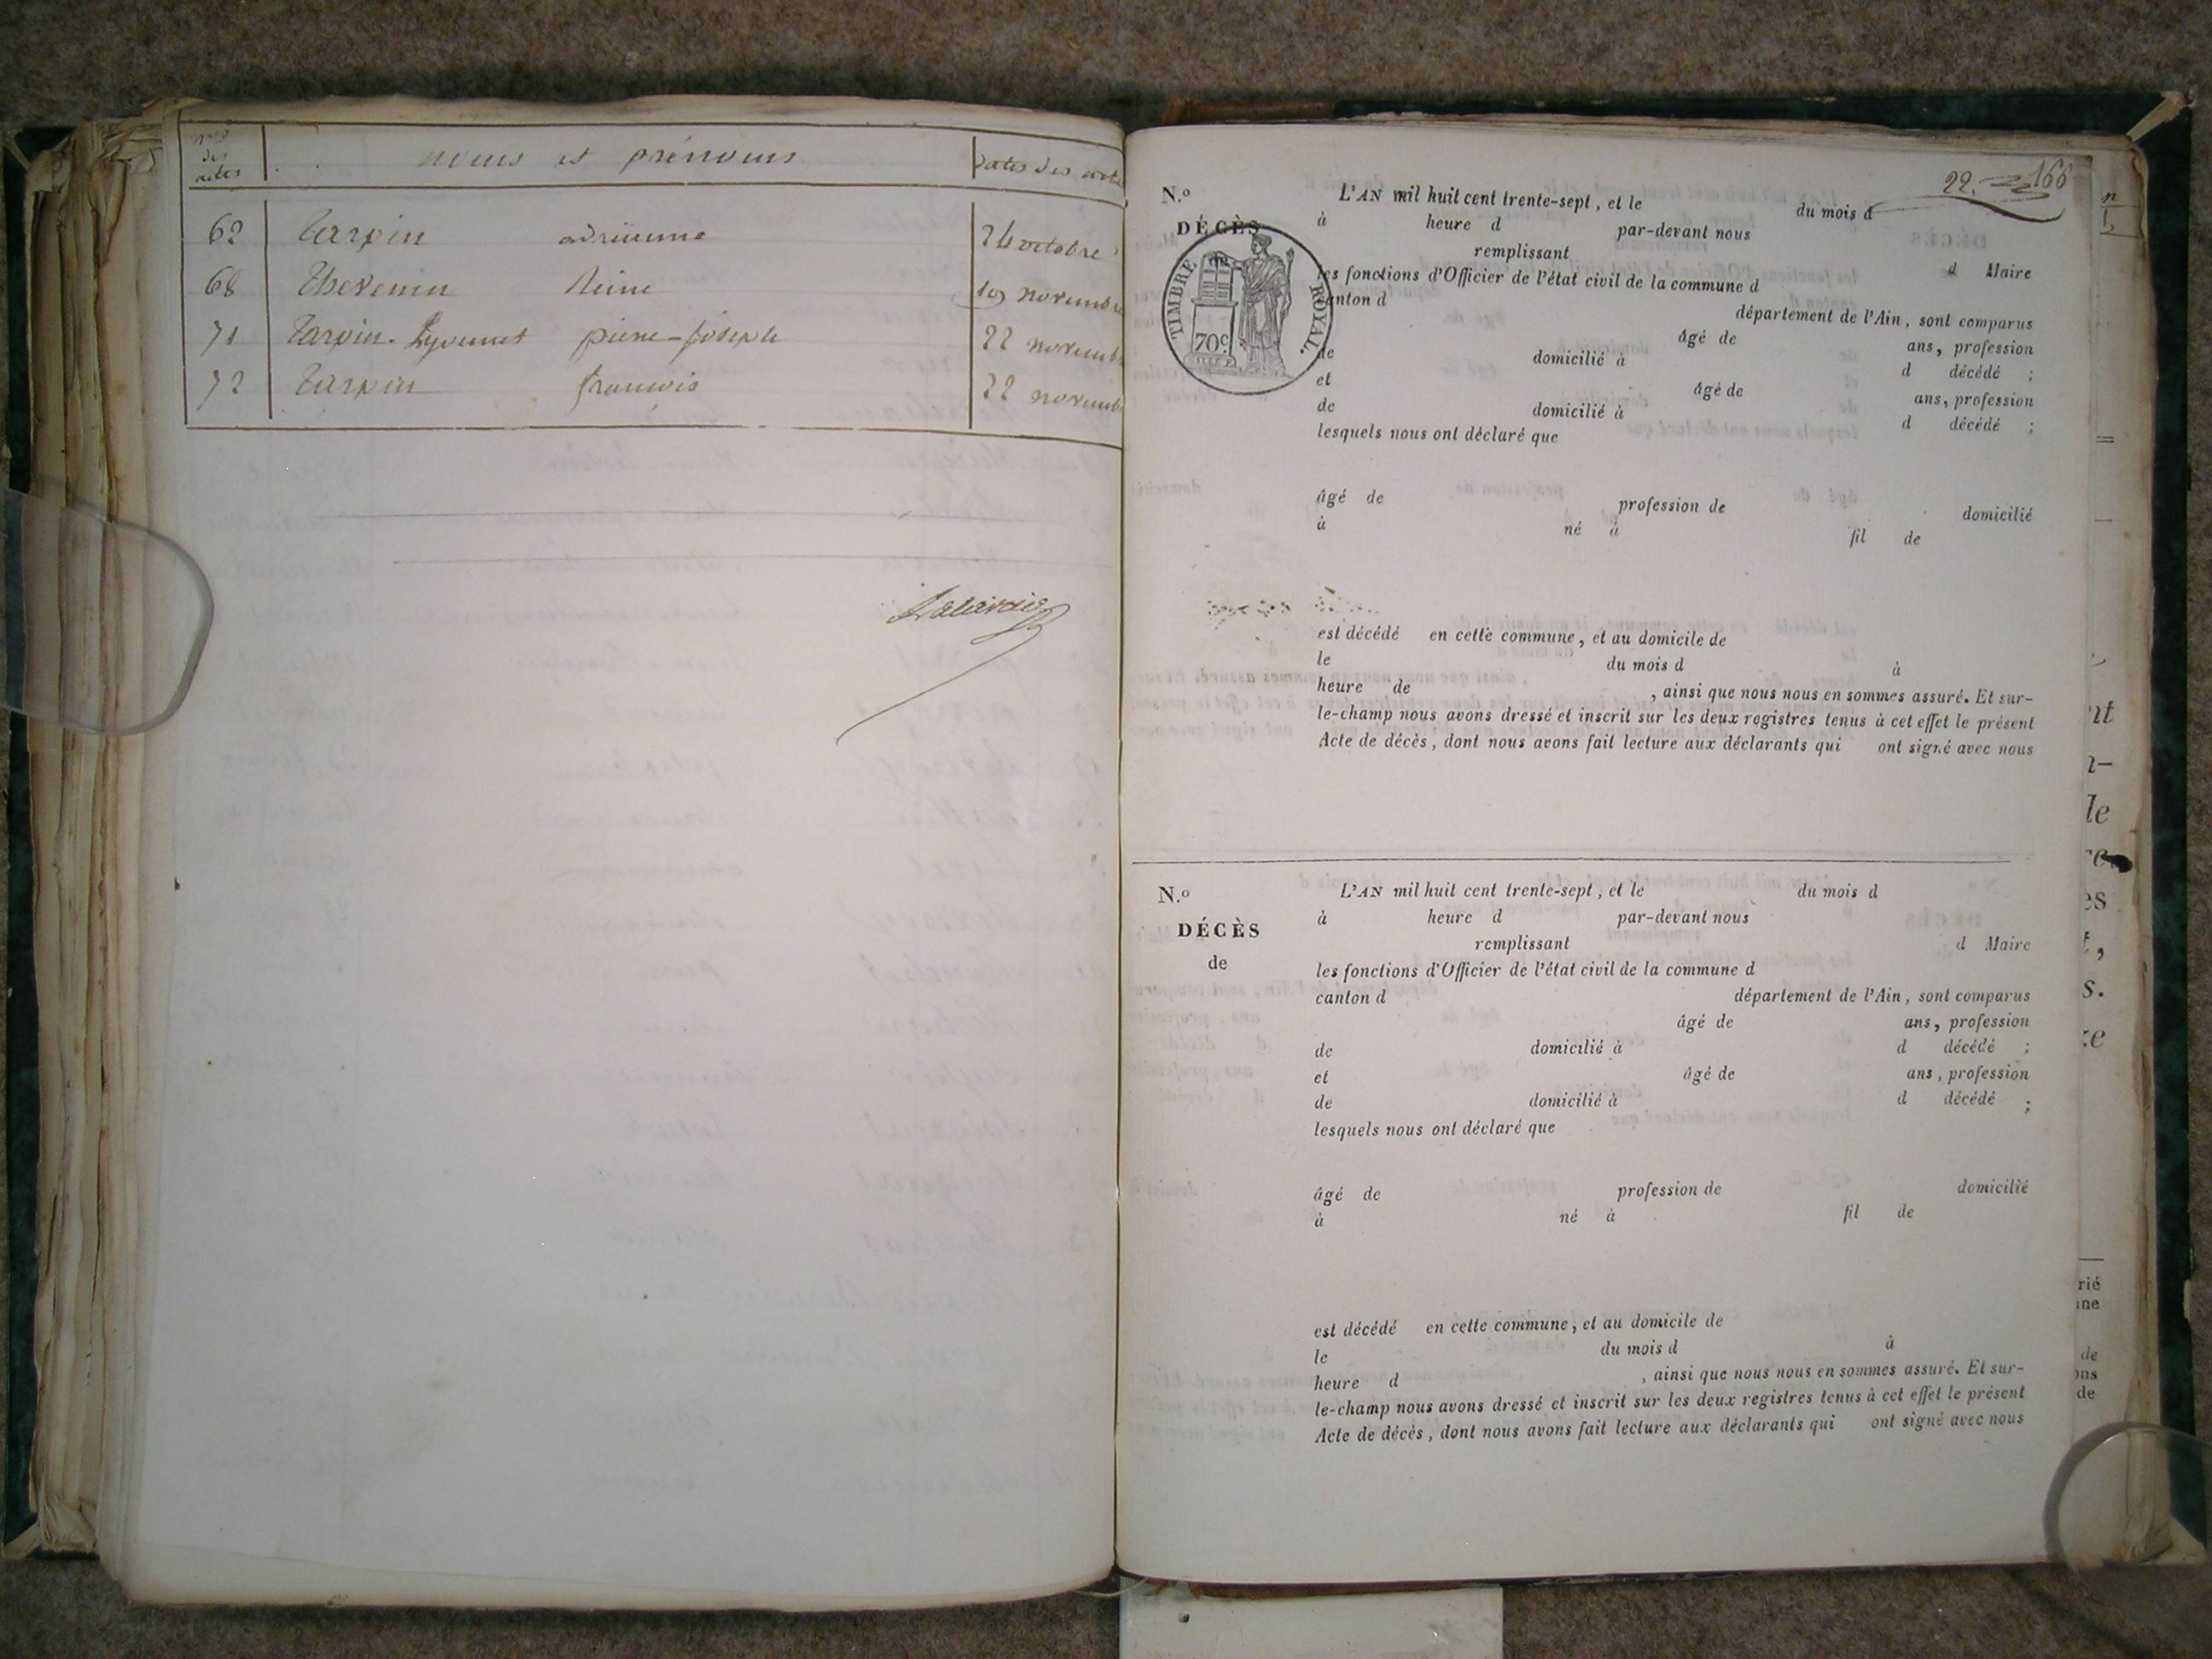 nos des actes noms et prénoms Dates des actes
62 Tarpin adrienne 24 octobre
68 Thevenin Reine 10 novembre
71 Tarpin-Lyonnet pierre-joseph 22 novemb
72 Tarpin francois 22 novemb
22. 166
N.o L'AN mil huit cent trente-sept, et le du mois d
DÉCÈS à heure d par-devant nous
remplissant d Maire
de les fonctions d'Officier de l'état civil de la commune d
canton d département de l'Ain, sont comparus
TIMBRE ROYAL.
70c
âgé de ans, profession
de domicilié à d décédé ;
et âgé de ans, profession
de domicilié à d décédé ;
lesquels nous ont déclaré que
âgé de profession de domicilié
à né à fil de
est décédé en cette commune, et au domicile de
le du mois d à
heure de , ainsi que nous nous en sommes assuré. Et sur-
le-champ nous avons dressé et inscrit sur les deux registres tenus à cet effet le présent
Acte de décès, dont nous avons fait lecture aux déclarants qui ont signé avec nous
N.o L'AN mil huit cent trente-sept, et le du mois d
DÉCÈS à heure d par-devant nous
remplissant d Maire
de les fonctions d'Officier de l'état civil de la commune d
canton d département de l'Ain, sont comparus
âgé de ans, profession
de domicilié à d décédé ;
et âgé de ans, profession
de domicilié à d décédé ;
lesquels nous ont déclaré que
âgé de profession de domicilié
à né à fil de
est décédé en cette commune, et au domicile de
le du mois d à
heure d , ainsi que nous nous en sommes assuré. Et sur-
le-champ nous avons dressé et inscrit sur les deux registres tenus à cet effet le présent
Acte de décès, dont nous avons fait lecture aux déclarants qui ont signé avec nous